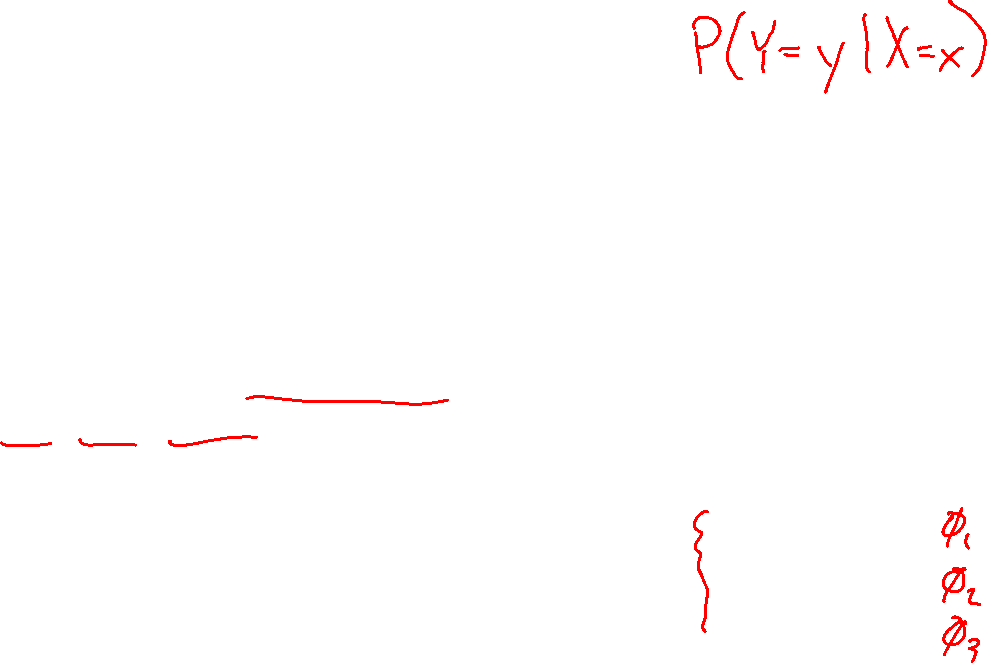 P(Y=y|X=x)
{ ϕ₁
ϕ₂
ϕ₃